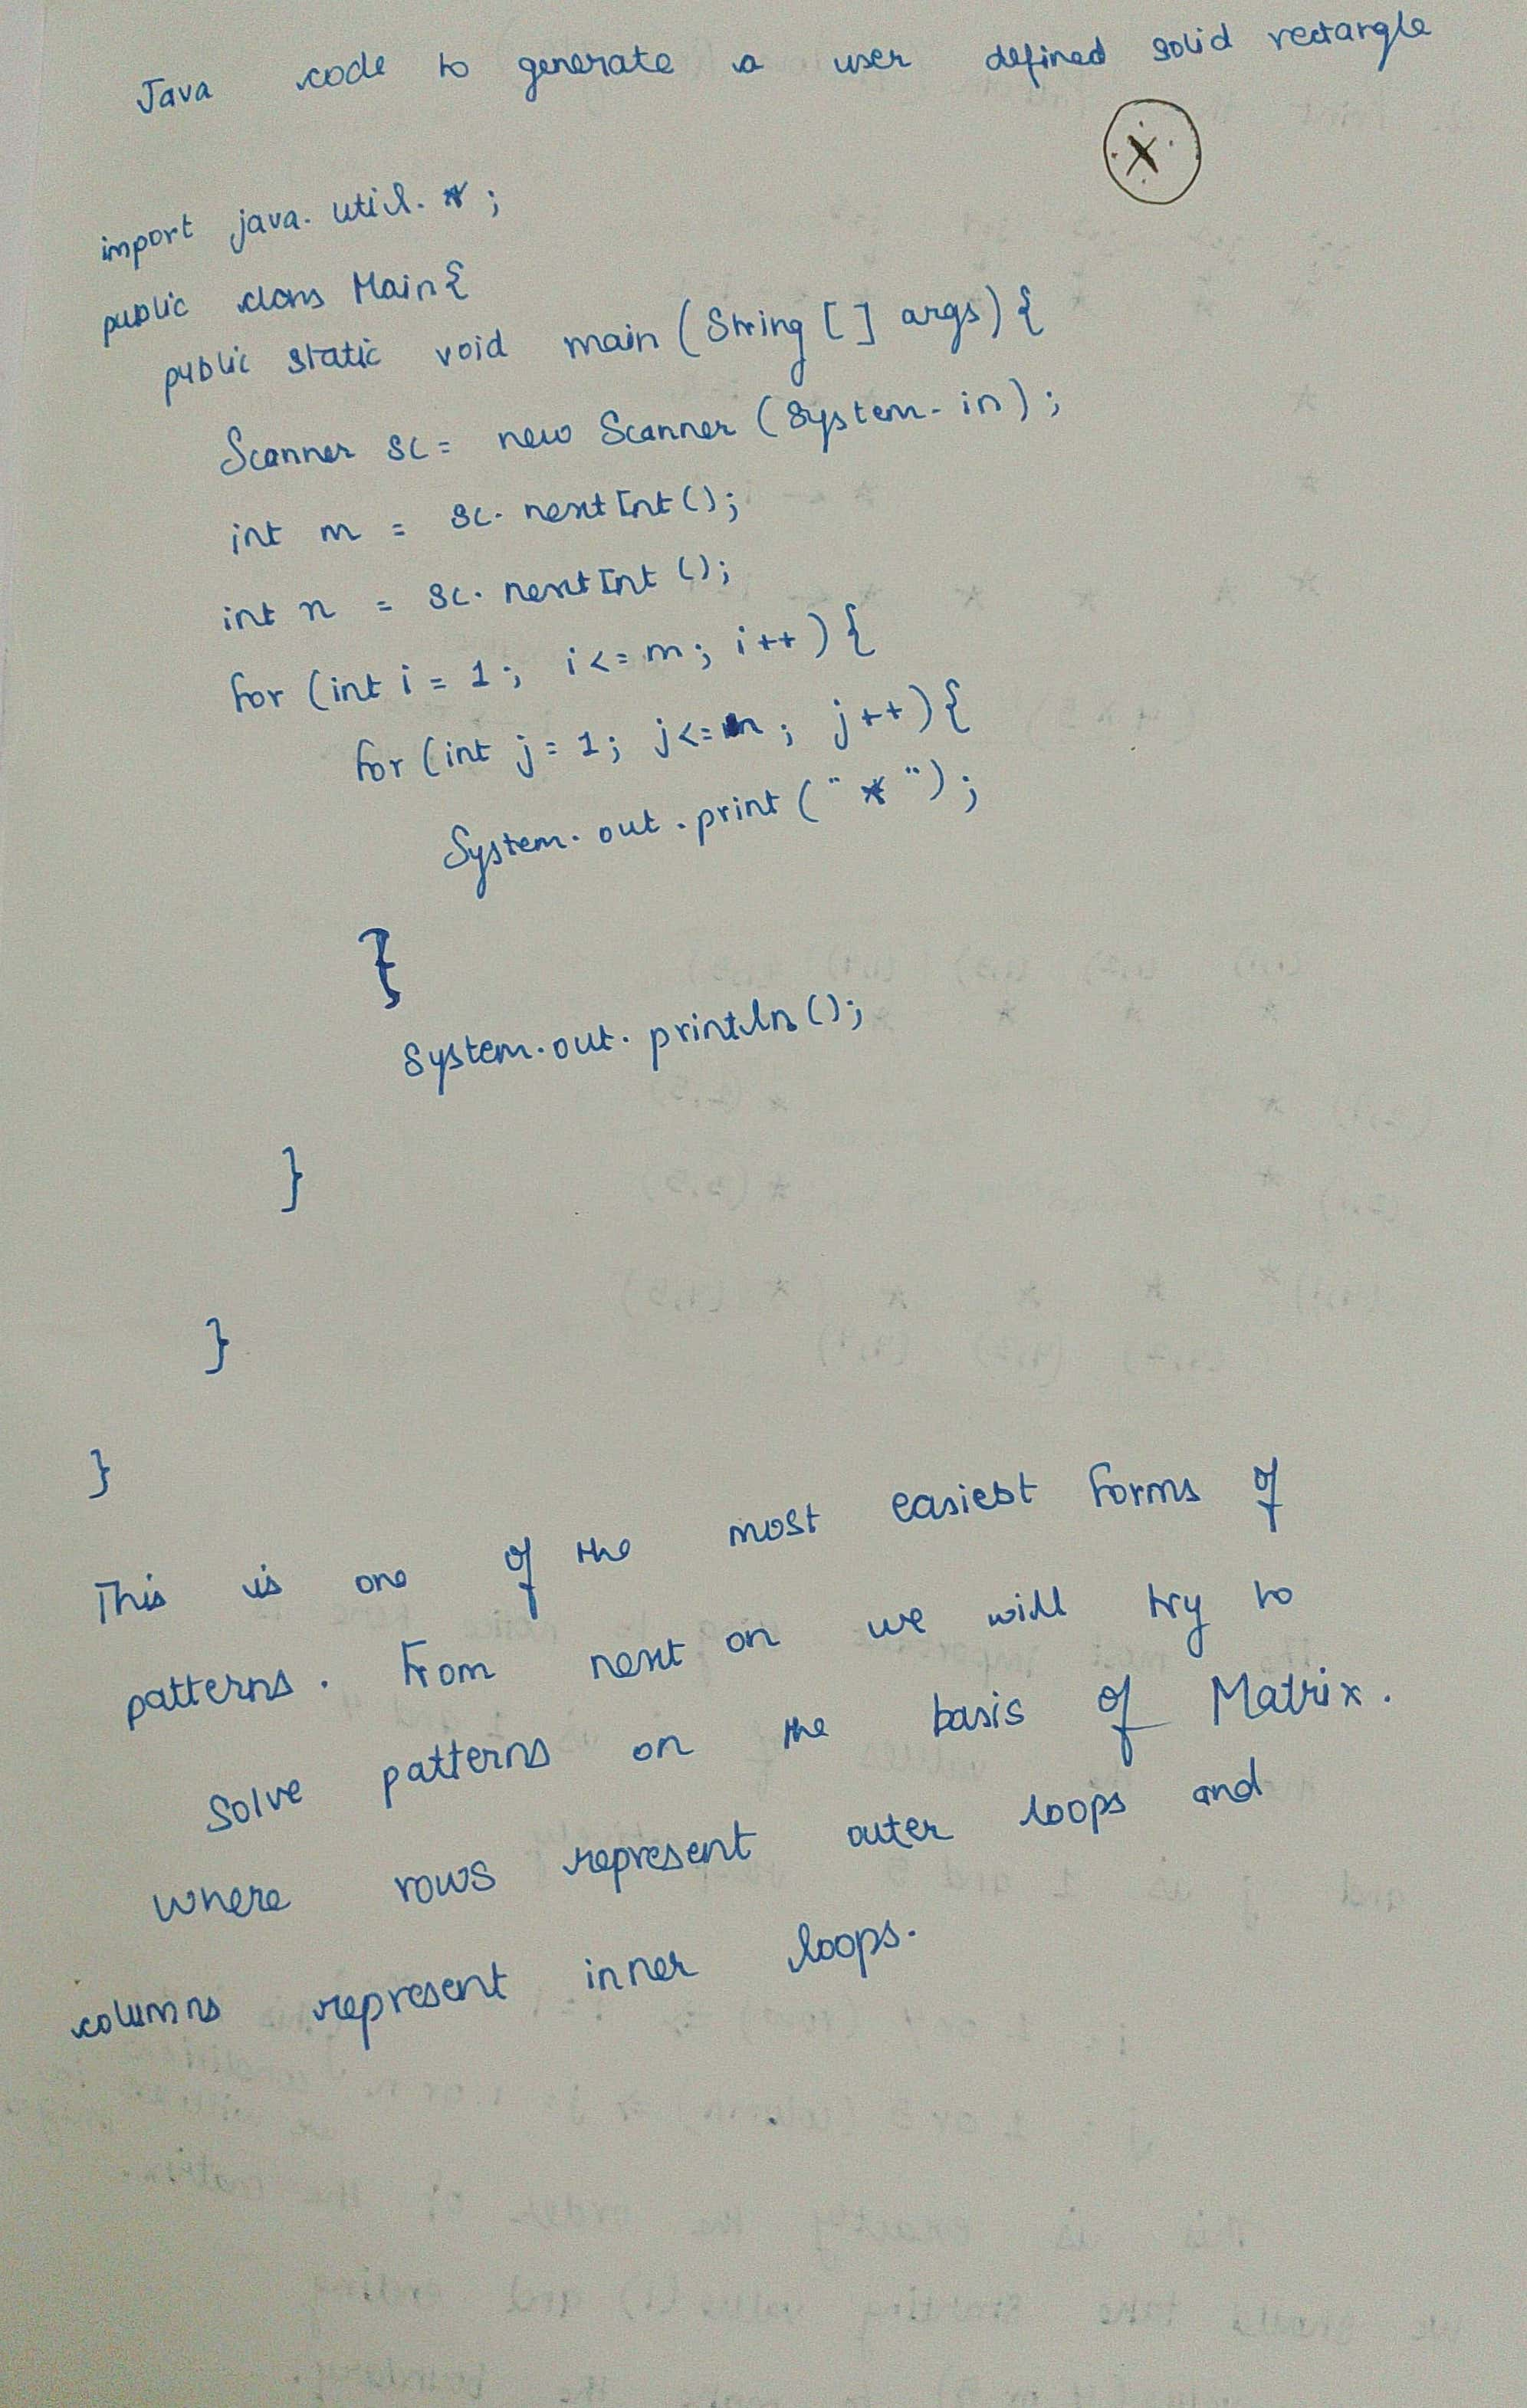 Java code to generate a user defined solid rectangle
X
import java.util.*;
public class Main{
public static void main (String [] args) {
Scanner sc = new Scanner (System.in);
int m = sc.nextInt();
int n = sc.nextInt();
for (int i = 1; i <= m; i++) {
for (int j = 1; j <= n; j++) {
System.out.print ("*");
}
System.out.println();
}
}
}
This is one of the most easiest forms of
patterns. From next on we will try to
solve patterns on the basis of Matrix.
where rows represent outer loops and
columns represent inner loops.